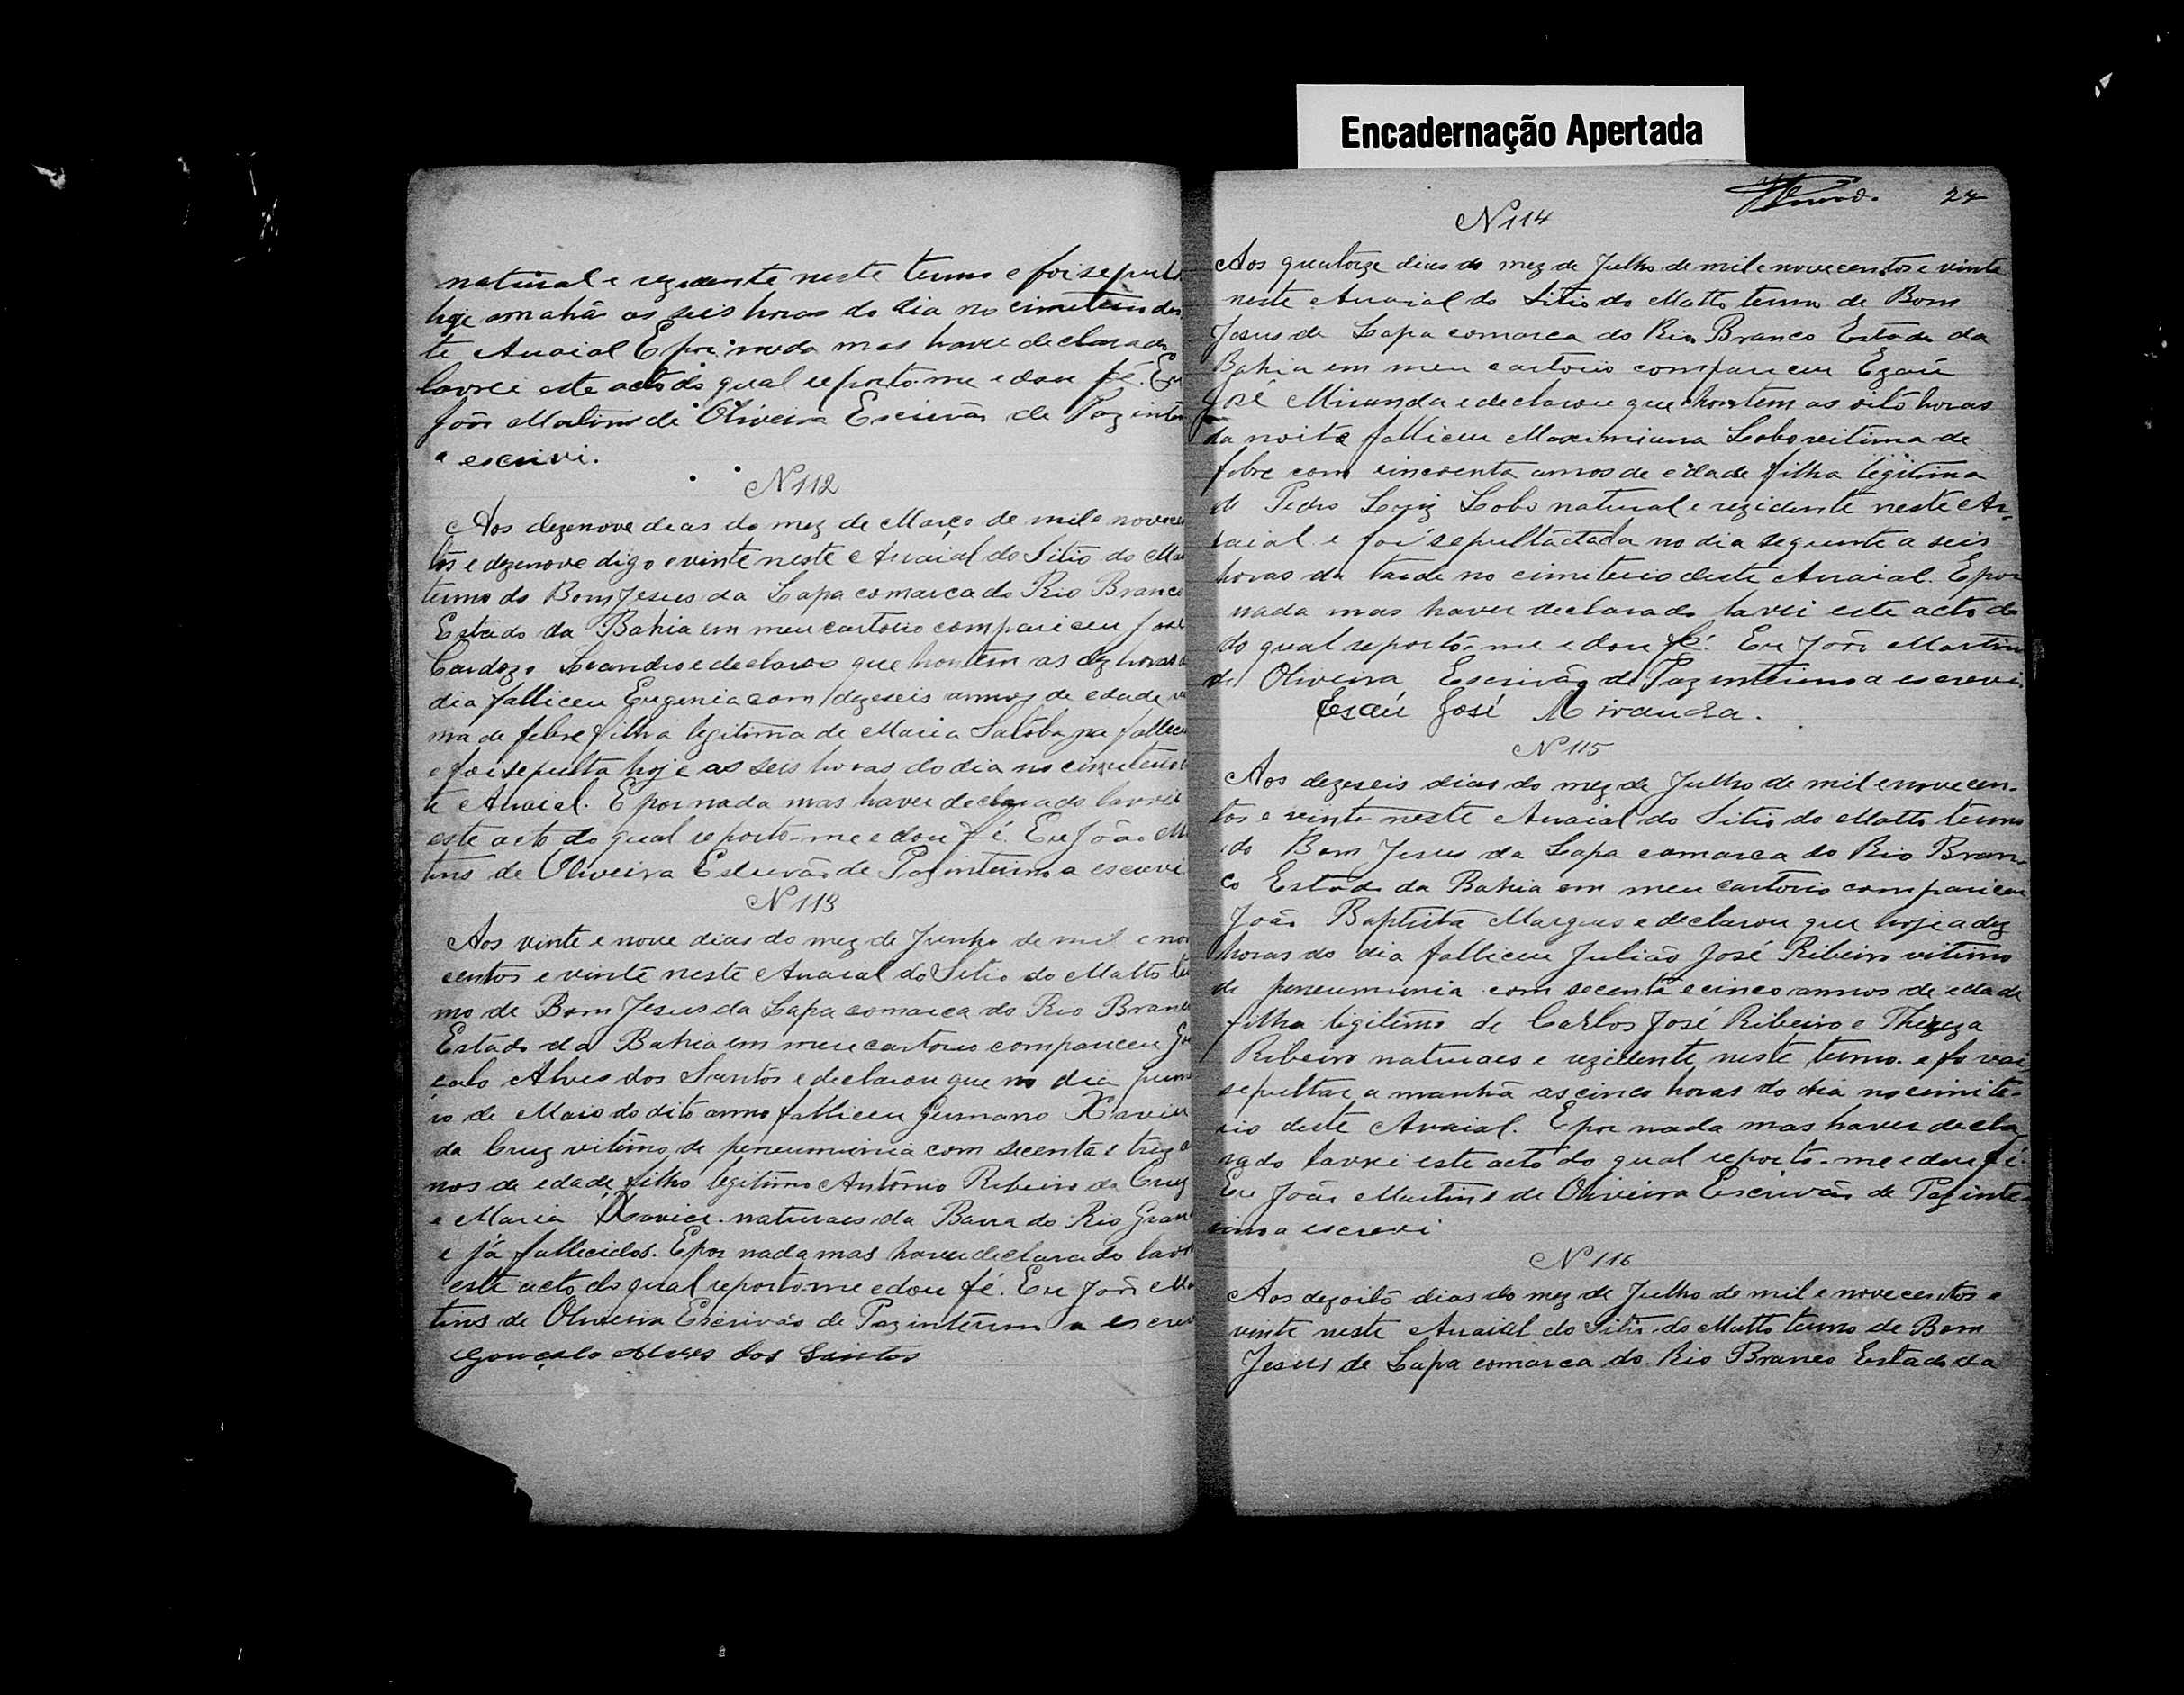 Encadernação Apertada
natural e rezidente neste termo e foi sepult
hoje amahã as seis horas do dia no cimiterio des
te Arraial E por nada mas haver declarado
lavrei este acto do qual reporto-me e dou fé. Eu
João Martins de Oliveira Escrivão de Paz interi
a escrivi.
N 112
Aos dezenove dias do mez de Março de mil e novecen
tos e dezenove digo e vinte neste Arraial do Sitio do Ma
termo do Bom Jesus da Lapa comarca do Rio Branco
Estado da Bahia em meu cartorio compariceu José
Cardozo Leandro e declarou que hontem as dez horas d
dia falliceu Eugenia com dezeseis annos de edade vi
ma de febre filha legitima de Maria já fallec
e foi sepulta hoje as seis horas do dia no cimiterio
te Arraial. E por nada mas haver declarado lavrei
este acto do qual reporto-me e dou fé. Eu João M
tins de Oliveira Escrivão de Paz interino a escrevi
N 113
Aos vinte e nove dias do mez de Junho de mil e no
centos e vinte neste Arraial do Sitio do Matto te
mo de Bom Jesus da Lapa comarca do Rio Branc
Estado da Bahia em meu cartorio compariceu Go
çalo Alves dos Santos e declarou que no dia prim
io de Maio do dito anno falliceu Germano Xavier
da Cruz vitimo de peneumunia com secenta e trez a
nos de edade filho legitimo Antônio Ribeiro da Cruz
e Maria Xavier naturaes da Barra do Rio Gran
e já fallicidos. E por nada mas haver declarado lavr
este acto do qual reporto-me e dou fé. Eu João Ma
tins de Oliveira Escrivão de Paz interino a escrev
Gonçalo Alves dos Santos
24
N 114
Aos quatorze dias do mez de Julho de mil e novecentos e vinte
neste Arraial do Sitio do Matto termo de Bom
Jesus da Lapa comarca do Rio Branco Estado da
Bahia em meu cartorio compariceu Ezaú
José Miranda e declarou que hontem as oitô horas
da noite falliceu Maximiana Lobo veitima de
febre com cincoenta annos de edade filha legitima
de Pedro Luiz Lobo natural e rezidente neste Ar-
raial e foi sepultactada no dia seguinte a seis
horas da tarde no cimiterio deste Arraial. E por
nada mas haver declarado lavrei este acto do
do qual reporto-me e dou fé. Eu João Martins
de Oliveira Escrivão de Paz interino a escrevi.
Esaú José Miranda.
N 115
Aos dezeseis dias do mez de Julho de mil e novecen-
tos e vinte neste Arraial do Sitio do Matto termo
do Bom Jesus da Lapa comarca do Rio Bran-
co Estado da Bahia em meu cartorio compariceu
João Baptista Marques e declarou que hoje a dez
horas do dia falliceu Julião José Ribeiro vitimo
de peneumunia com secenta e cinco annos de edade
filho ligitimo de Carlos José Ribeiro e Thereza
Ribeiro naturaes e rezidente neste termo e fo vai
sepultar a manhã as cinco horas do dia no cimite-
rio deste Arraial. E por nada mas haver decla
rado lavrei este acto do qual reporto-me e dou fé.
Eu João Martins de Oliveira Escrivão de Paz inte-
rino a escrevi
N 116
Aos dezoitô dias do mez de Julho de mil e novecentos e
vinte neste Arraial do Sitio do Matto termo de Bom
Jesus de Lapa comarca do Rio Branco Estado da